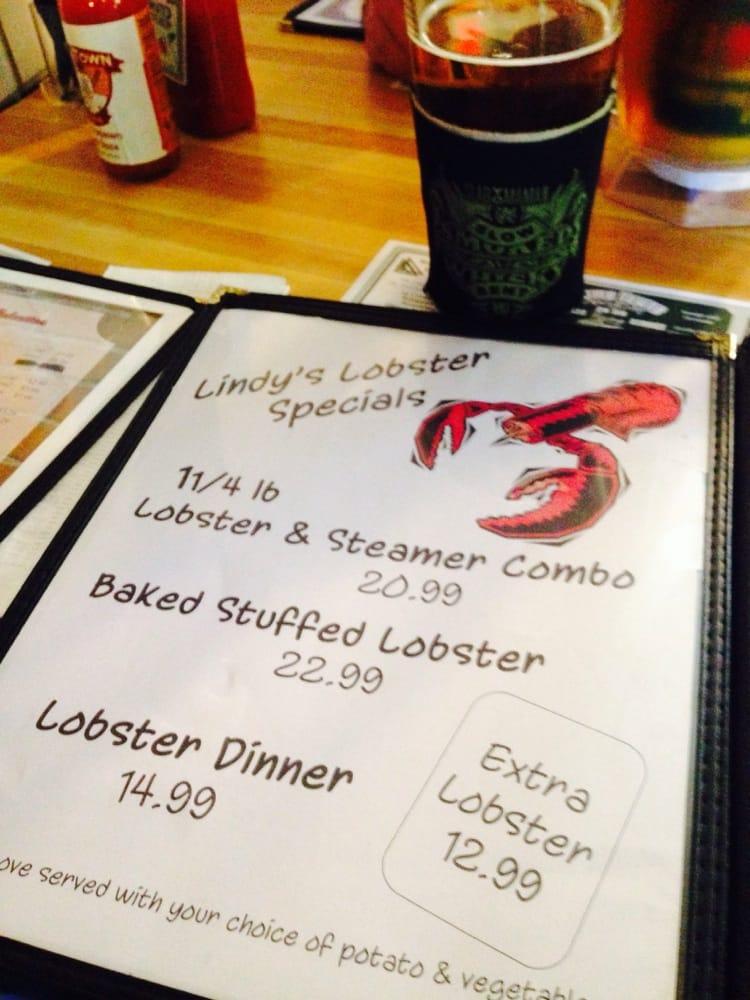 Lindy's Lobster
Specials
11/4 lb
Lobster & Steamer Combo
20.99
Baked Stuffed Lobster
22.99
Lobster Dinner
14.99
Extra
Lobster
12.99
served with your choice of potato &
OWN